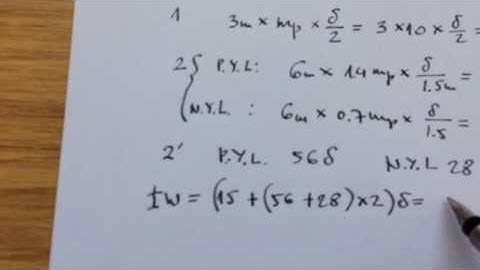 1 3m × mp × δ/2 = 3 × 10 × δ/2 =
2 { P.Y.L: 6m × 14 mp × δ/1.5m =
N.Y.L. : 6m × 0.7mp × δ/1.5 =
2' P.Y.L. 56δ N.Y.L 28
IW = (15 + (56 + 28) × 2) δ =